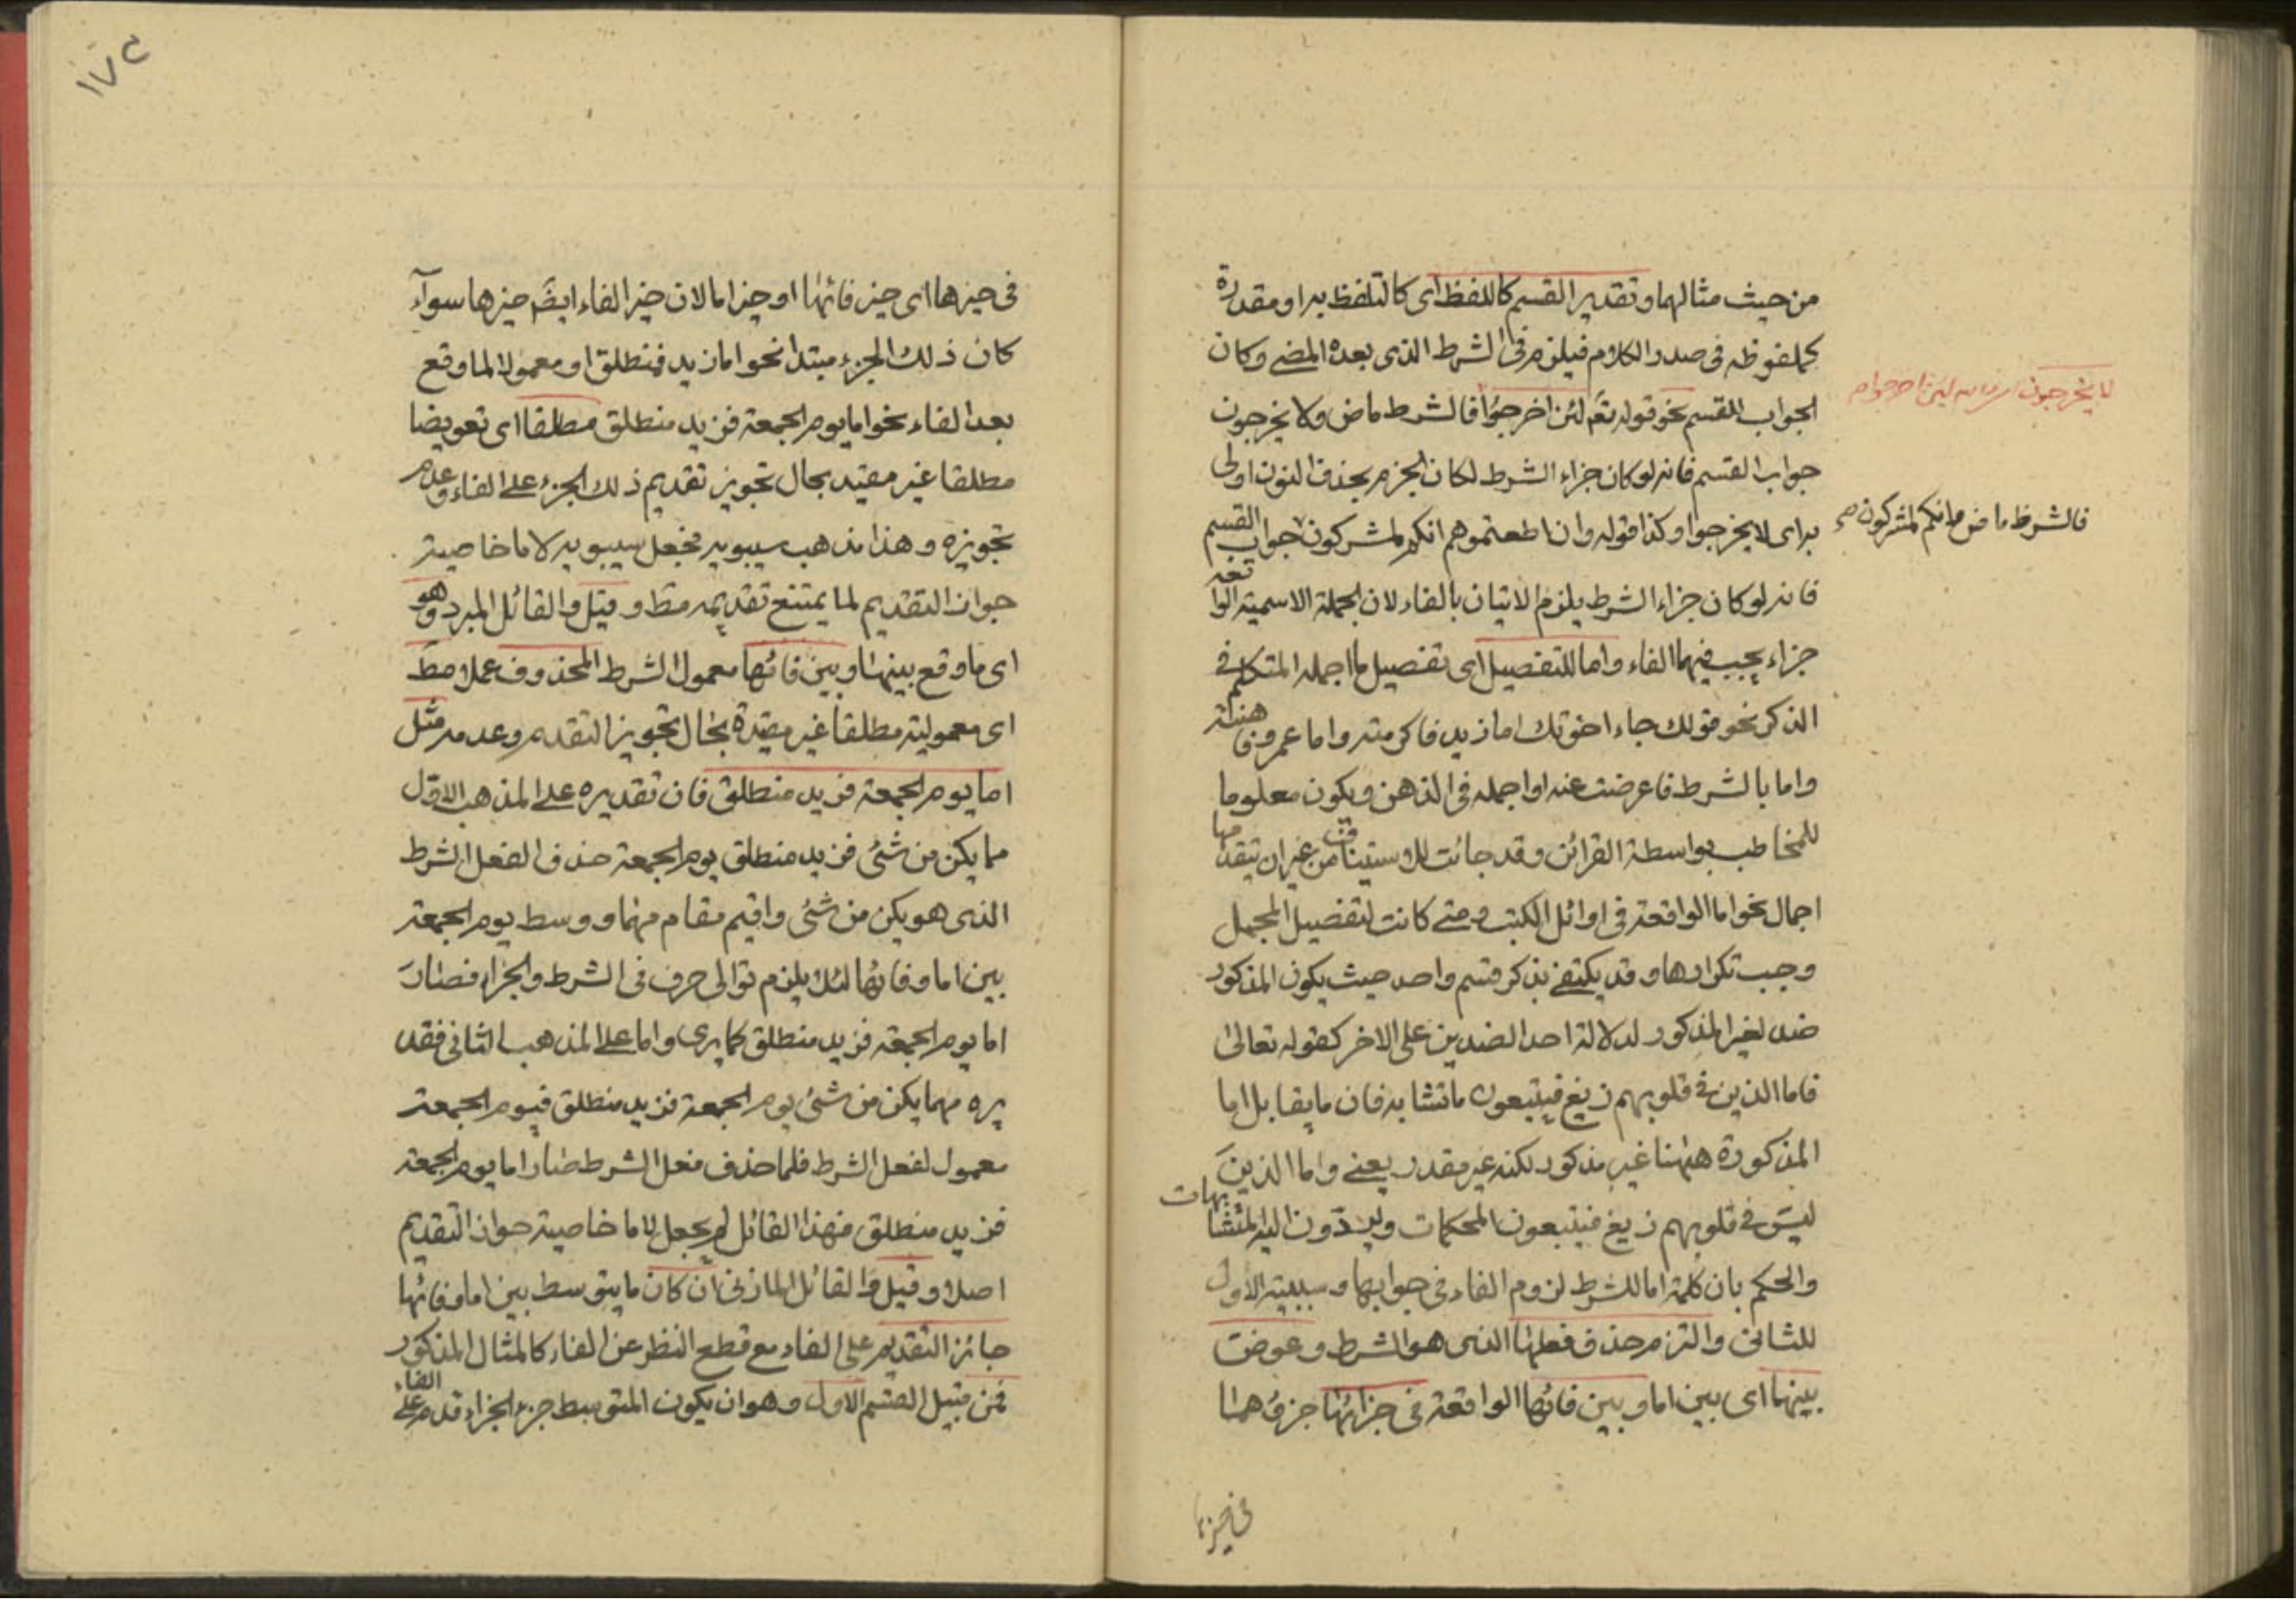 من حيث مثالهما وتقدير القسم كاللفظ اى كالتلفظ به او مقدرة
كملفوظه فى صدر الكلام فيلزم فى الشرط الذى بعده المضى وكان
الجواب للقسم نحو قوله تعم لئن اخرجوا فالشرط ماض ولا يخرجون
لا يخرجون لئن اخرجوا
جواب القسم فانه لو كان جزاء الشرط لكان الجزم بحذف النون اولى
به اى لا يخرجوا وكذا قوله وان اطعتموهم انكم لمشركون جواب القسم
فالشرط ماض وانكم لمشركون صح
فانه لو كان جزاء الشرط يلزم الاتيان بالفاء لان الجملة الاسمية الواقعة
جزاء يجب فيها الفاء واما للتفصيل اى تفصيل ما اجمله المتكلم فى
الذكر نحو قولك جاء اخوتك اما زيد فاكرمته واما عمرو فاهنته
واما بالشرط فاعرضت عنه او اجمله فى الذهن ويكون معلوما
للمخاطب بواسطة القرائن وقد جائت للاستيناف من غير ان يتقدمها
اجمال نحو اما الواقعة فى اوائل الكتب ومتى كانت لتفصيل المجمل
وجب تكرارها وقد يكتفى بذكر قسم واحد حيث يكون المذكور
ضد لغير المذكور لدلالة احد الضدين على الاخر كقوله تعالى
فاما الذين فى قلوبهم زيغ فيتبعون ما تشابه فان ما يقابل اما
المذكورة ههنا غير مذكور لكنه غير مقدر يعنى واما الذين
ليس فى قلوبهم زيغ فيتبعون المحكمات ويردّون اليه المتشابهات
والحكم بان كلمة اما للشرط لزوم الفاء فى جوابها وسببية الاول
للثانى والتزم حذف فعلها الذى هو الشرط وعوض
بينها اى بين اما وبين فائها الواقعة فى جزائها جزؤ مما
فى حيزها
١٧٢
فى حيزها اى حيز فائها او حيز اما لان حيز الفاء ايضً حيزها سوآء
كان ذلك الجزء مبتدا نحو اما زيد فمنطلق او معمولا لما وقع
بعد الفاء نحو اما يوم الجمعة فزيد منطلق مطلقا اى تعويضا
مطلقا غير مقيد بحال تجويز تقديم ذلك الجزء على الفاء وعدم
تجويزه وهذا مذهب سيبويه فجعل سيبويه لاما خاصية
جواز التقديم لما يمتنع تقديمه مط وقيل والقائل المبرد وهو
اى ما وقع بينها وبين فائها معمول الشرط المحذوف عملا مط
اى معمولية مطلقا غير مقيدة بحال تجويز التقديم وعدمه مثل
اما يوم الجمعة فزيد منطلق فان تقديره على المذهب الاوّل
مما يكن من شئى فزيد منطلق يوم الجمعة حذف الفعل الشرط
الذى هو يكن من شئى واقيم مقام مهما ووسط يوم الجمعة
بين اما وفائها لئلا يلزم توالى حرفى الشرط والجزاء فصار
اما يوم الجمعة فزيد منطلق كما يرى واما على المذهب الثانى فقد
يره مهما يكن من شئى يوم الجمعة فزيد منطلق فيوم الجمعة
معمول لفعل الشرط فلما حذف فعل الشرط صار اما يوم الجمعة
فزيد منطلق فهذا القائل لم يجعل لاما خاصية جواز التقديم
اصلا وقيل والقائل المازنى ان كان ما يتوسط بين اما وفائها
جائز التقديم على الفاء مع قطع النظر عن الفاء كالمثال المذكور
فمن قبيل القسم الاول وهو ان يكون المتوسط جزء الجزاء قدم على الفاء